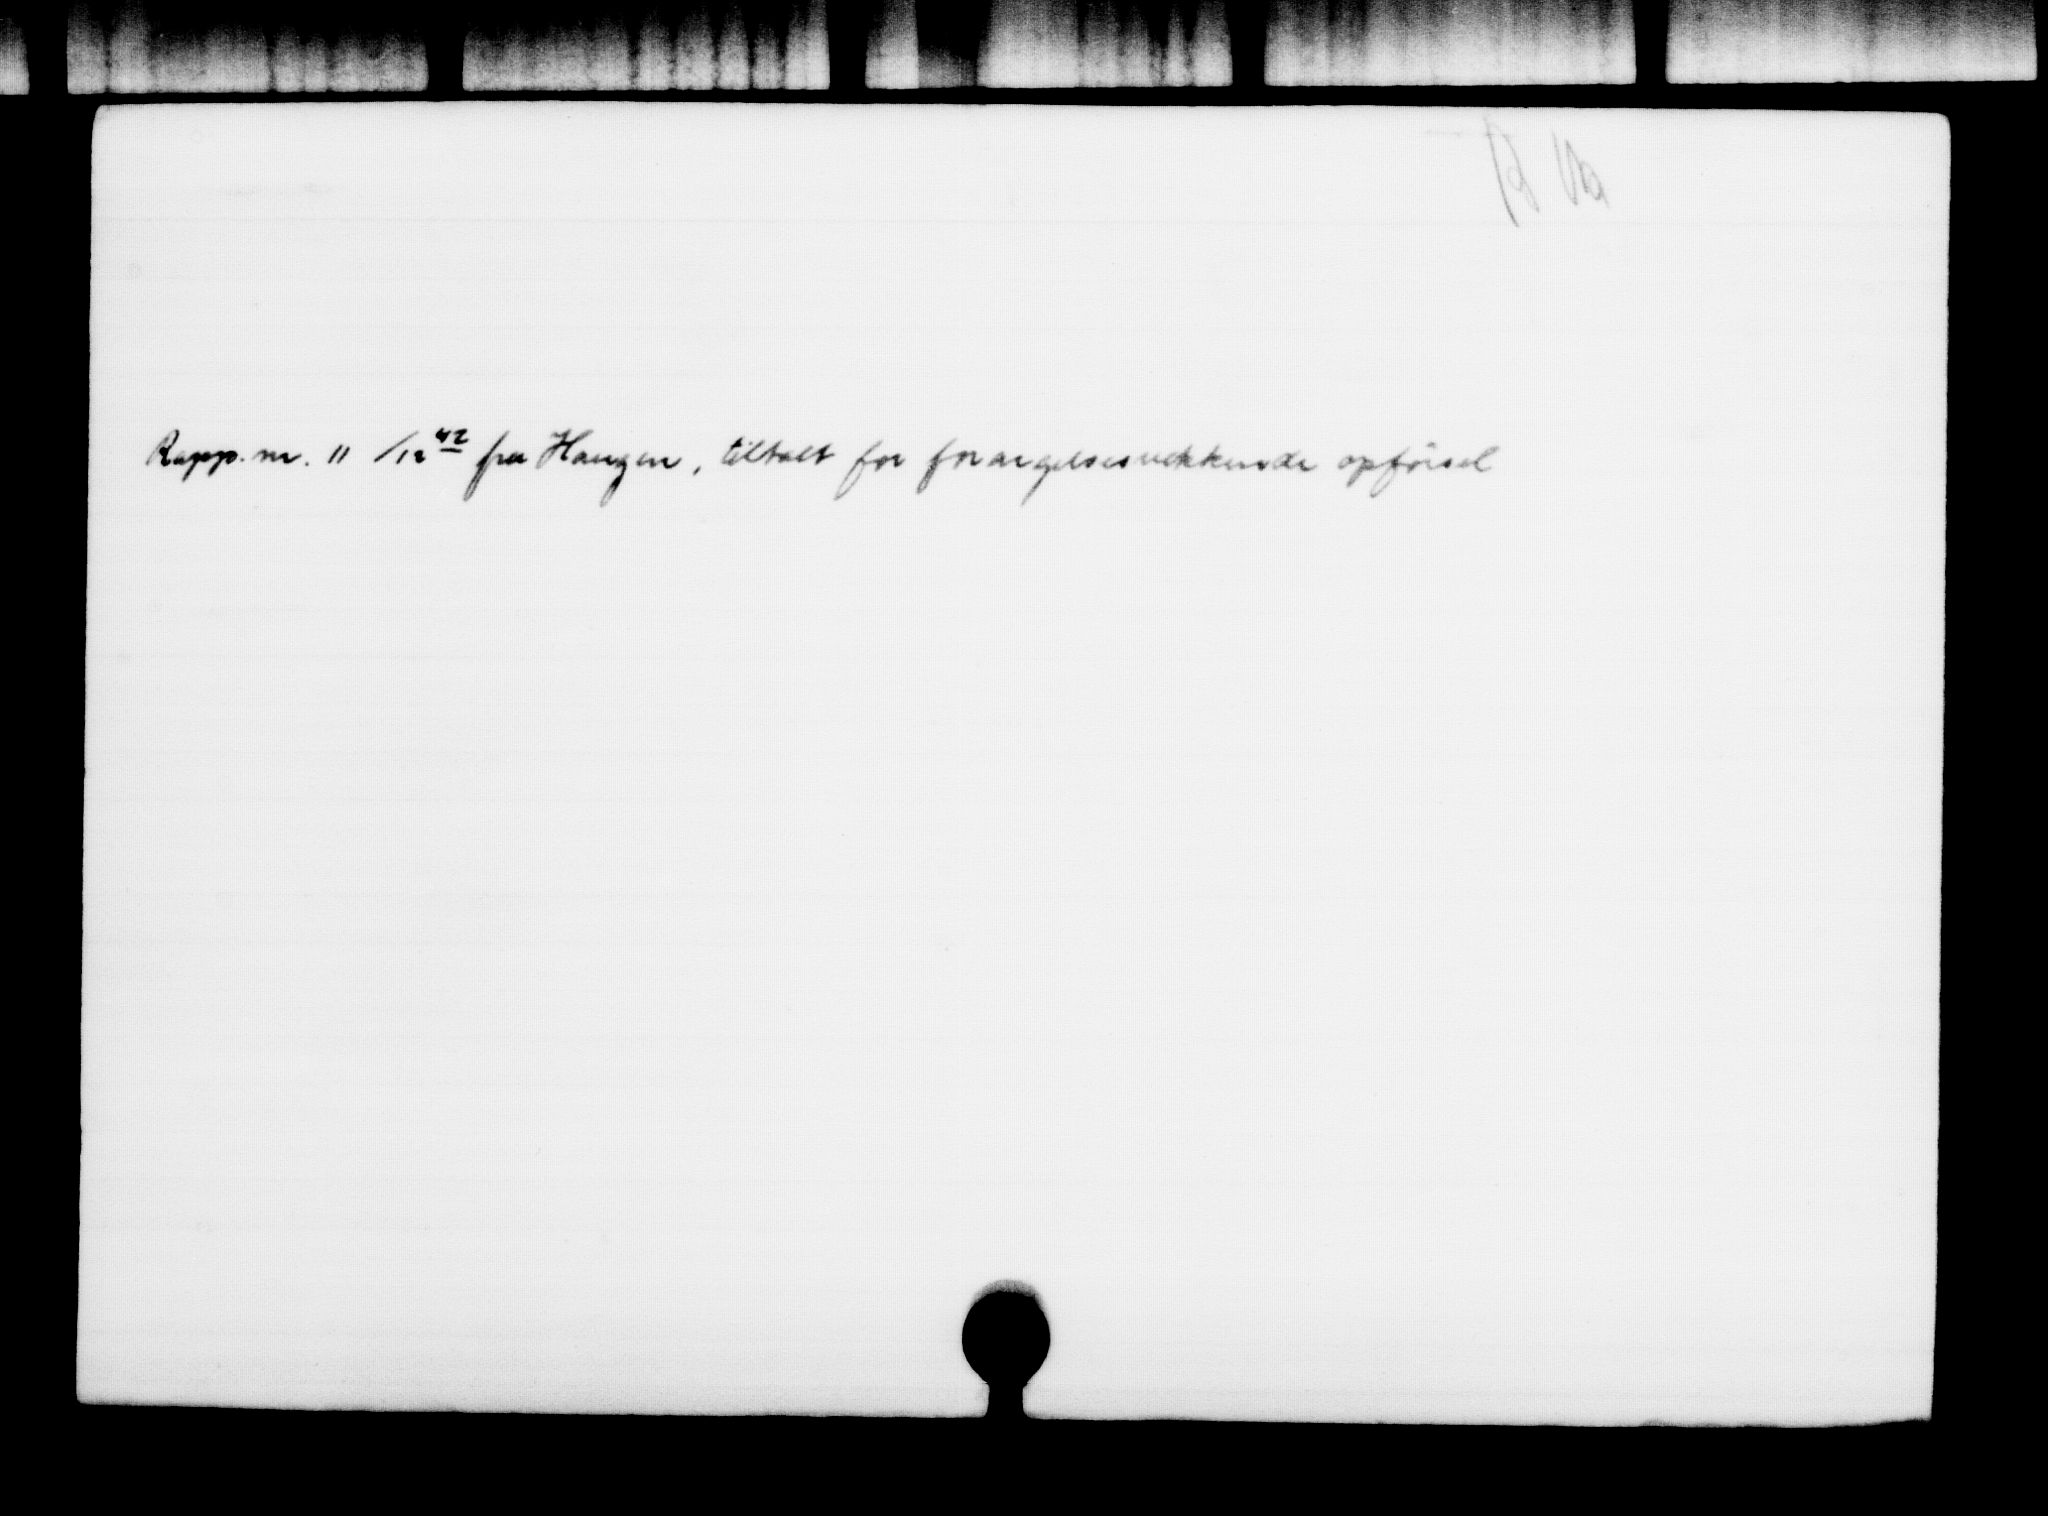 Rapp. nr. 11 /12 42 fra Haugen, tiltalt for forargelsesvekkende opførsel